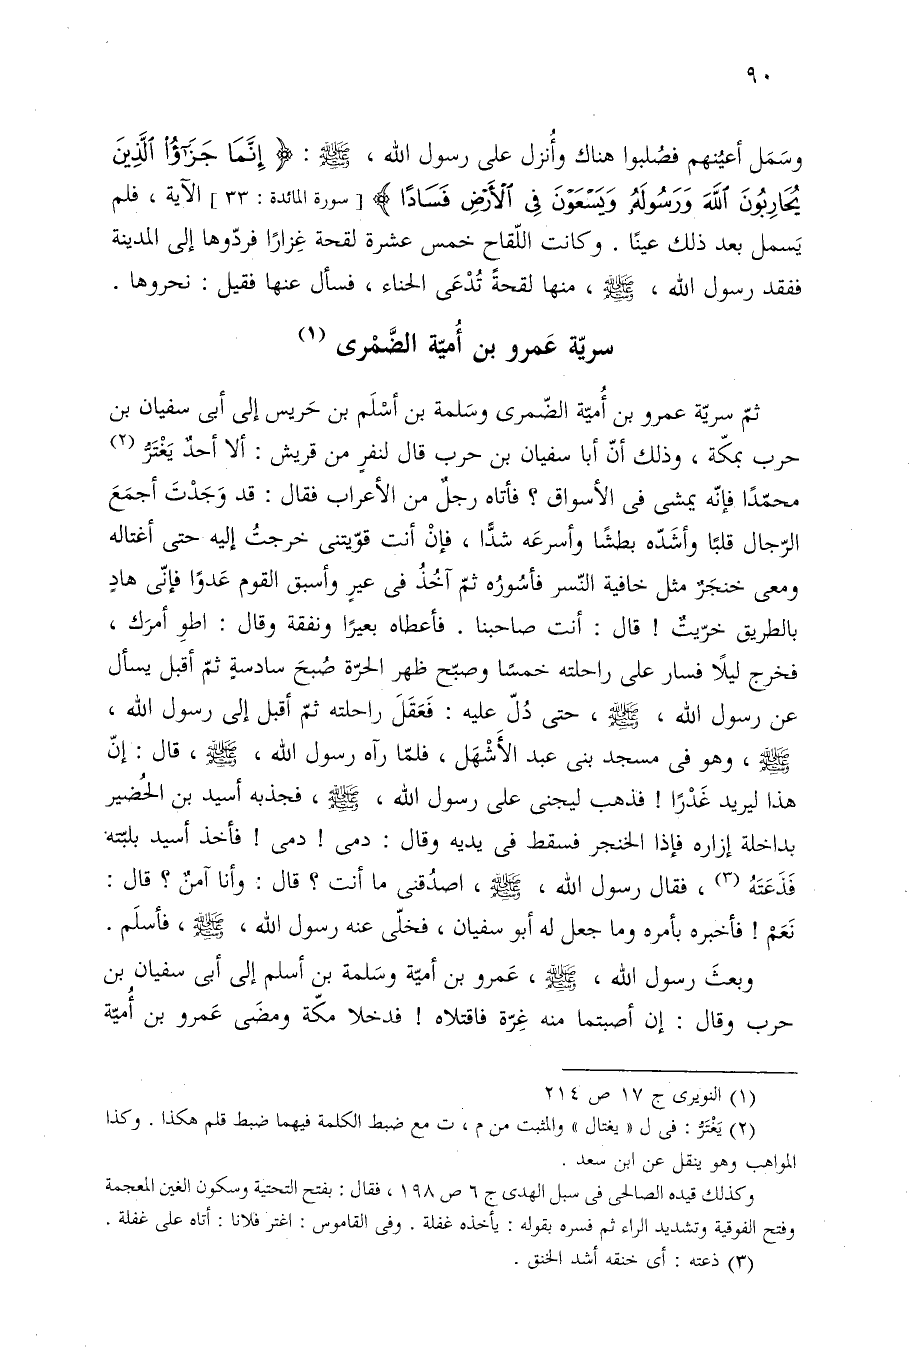 ٩٠
وسَمَل أعيُنهم فصُلبوا هناك وأُنزل على رسول الله ، ﷺ : ﴿ إِنَّمَا جَزَٰٓؤُاْ ٱلَّذِينَ
يُحَارِبُونَ ٱللَّهَ وَرَسُولَهُۥ وَيَسْعَوْنَ فِى ٱلْأَرْضِ فَسَادًا ﴾ [ سورة المائدة : ٣٣ ] الآية ، فلم
يَسمل بعد ذلك عينًا . وكانت اللّقاح خمس عشرة لقحة غِزارًا فردّوها إلى المدينة
ففقد رسول الله ، ﷺ ، منها لقحةً تُدْعَى الحناء ، فسأل عنها فقيل : نحروها .
سريّة عَمرو بن أُميّة الضَّمْرى (١)
ثمّ سريّة عمرو بن أُميّة الضّمرى وسَلمة بن أسْلَم بن حَريس إلى أبى سفيان بن
حرب بمكّة ، وذلك أنّ أبا سفيان بن حرب قال لنفرٍ من قريش : ألا أحدٌ يَغْتَرُّ (٢)
محمّدًا فإنّه يمشى فى الأسواق ؟ فأتاه رجلٌ من الأعراب فقال : قد وَجَدْتَ أجمَعَ
الرّجال قلبًا وأشَدّه بطشًا وأسرعَه شدًّا ، فإنْ أنت قوّيتنى خرجتُ إليه حتى أغتاله
ومعى خنجَرٌ مثل خافية النّسر فأسُورُه ثمّ آخُذُ فى عيرٍ وأسبق القوم عَدوًا فإنّى هادٍ
بالطريق خرّيتٌ ! قال : أنت صاحبنا . فأعطاه بعيرًا ونفقة وقال : اطوِ أمرَك ،
فخرج ليلًا فسار على راحلته خمسًا وصبّح ظهر الحرّة صُبحَ سادسةٍ ثمّ أقبل يسأل
عن رسول الله ، ﷺ ، حتى دُلّ عليه : فَعَقَلَ راحلته ثمّ أقبل إلى رسول الله ،
ﷺ ، وهو فى مسجد بنى عبد الأَشْهَل ، فلمّا رآه رسول الله ، ﷺ ، قال : إنّ
هذا ليريد غَدْرًا ! فذهب ليجنى على رسول الله ، ﷺ ، فجذبه أسيد بن الحُضير
بداخلة إزاره فإذا الخنجر فسقط فى يديه وقال : دمى ! دمى ! فأخذ أسيد بلبّته
فَذَعَتَهُ (٣) ، فقال رسول الله ، ﷺ ، اصدُقنى ما أنت ؟ قال : وأنا آمنٌ ؟ قال :
نَعَمْ ! فأخبره بأمره وما جعل له أبو سفيان ، فخلّى عنه رسول الله ، ﷺ ، فأسلَم .
وبعثَ رسول الله ، ﷺ ، عَمرو بن أميّة وسَلمة بن أسلم إلى أبى سفيان بن
حرب وقال : إن أصبتما منه غِرّة فاقتلاه ! فدخلا مكّة ومضَى عَمرو بن أُميّة
(١) النويرى ج ١٧ ص ٢١٤
(٢) يَغْتَرُّ : فى ل « يغتال » والمثبت من م ، ت مع ضبط الكلمة فيهما ضبط قلم هكذا . وكذا
المواهب وهو ينقل عن ابن سعد .
وكذلك قيده الصالحى فى سبل الهدى ج ٦ ص ١٩٨ ، فقال : بفتح التحتية وسكون الغين المعجمة
وفتح الفوقية وتشديد الراء ثم فسره بقوله : يأخذه غفلة . وفى القاموس : اغتر فلانا : أتاه على غفلة .
(٣) ذعته : أى خنقه أشد الخنق .